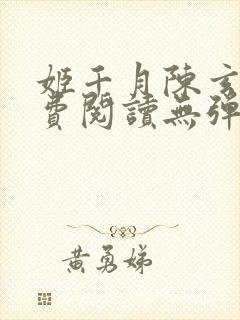 姬千月陳玄
費閱讀無彈
黃勇娣